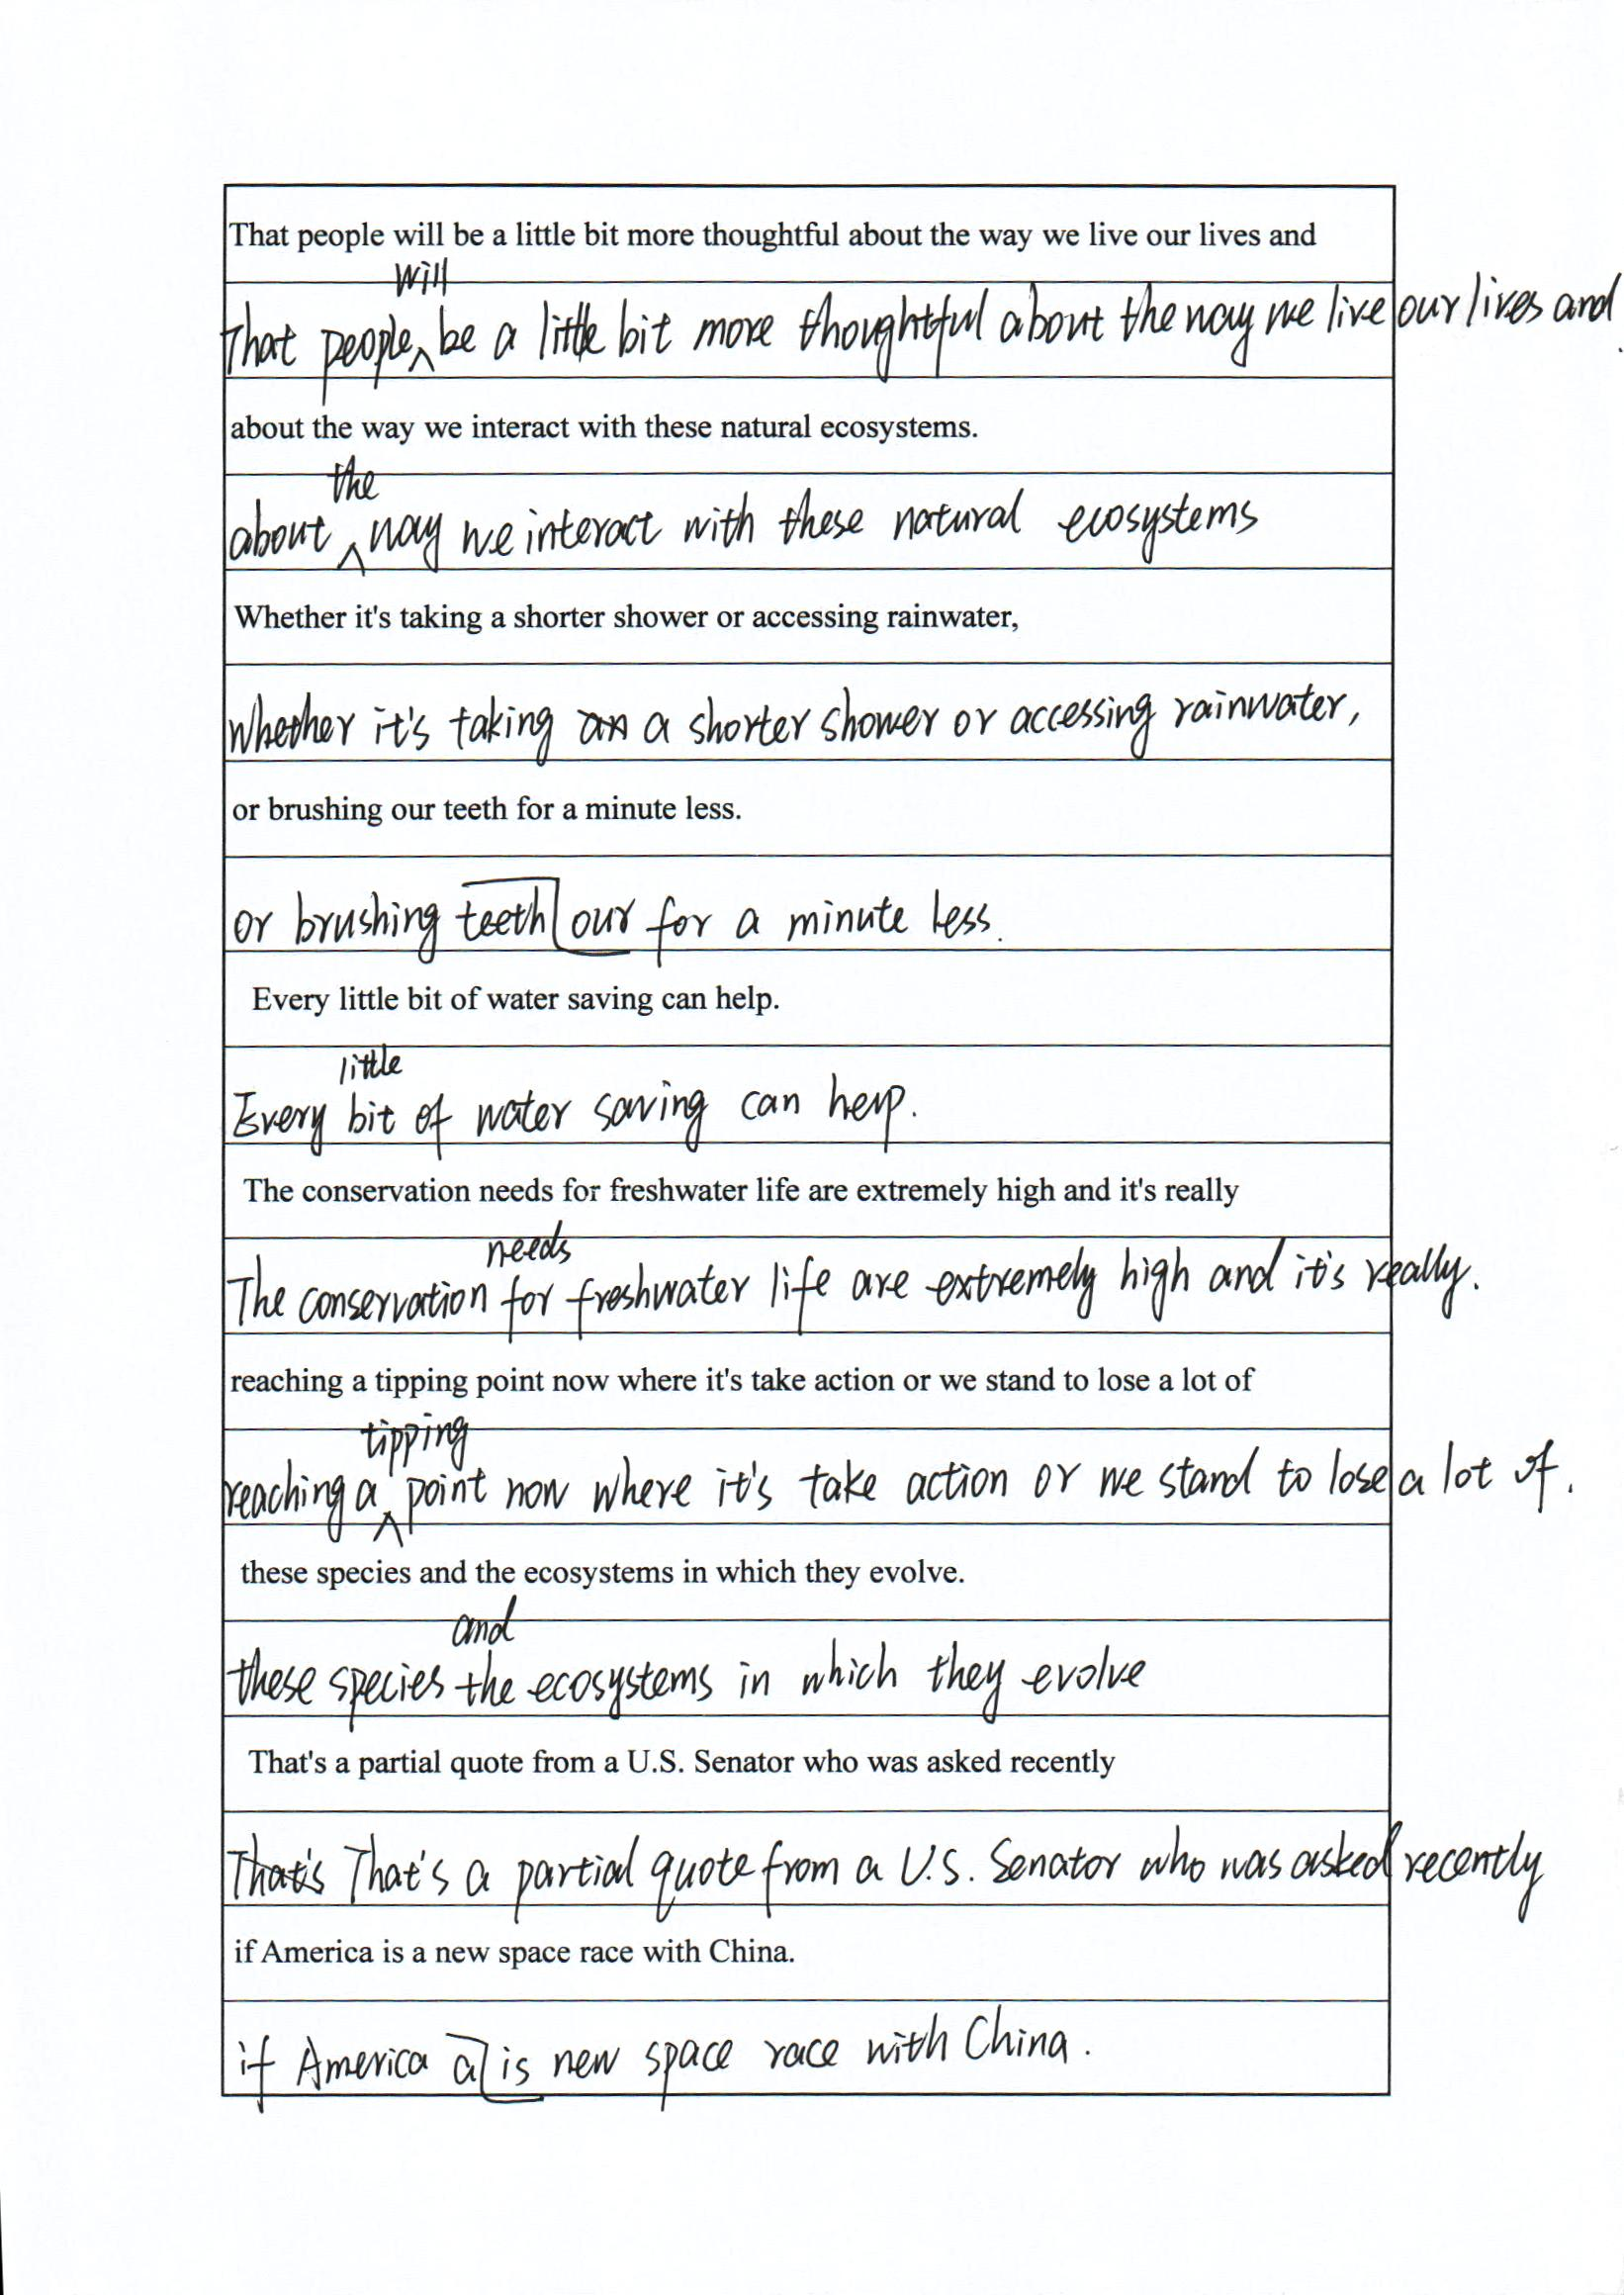 That people will be a little bit more thoughtful about the way we live our lives and
That people will be a little bit more thoughtful about the way we live our lives and.
about the way we interact with these natural ecosystems.
about the way we interact with these natural ecosystems
Whether it's taking a shorter shower or accessing rainwater,
Whether it's taking an a shorter shower or accessing rainwater,
or brushing our teeth for a minute less.
or brushing teeth our for a minute less.
Every little bit of water saving can help.
Every little bit of water saving can help.
The conservation needs for freshwater life are extremely high and it's really
The conservation needs for freshwater life are extremely high and it's really.
reaching a tipping point now where it's take action or we stand to lose a lot of
reaching a tipping point now where it's take action or we stand to lose a lot of.
these species and the ecosystems in which they evolve.
these species and the ecosystems in which they evolve
That's a partial quote from a U.S. Senator who was asked recently
That's That's a partial quote from a U.S. Senator who was asked recently
if America is a new space race with China.
if America a is new space race with China.